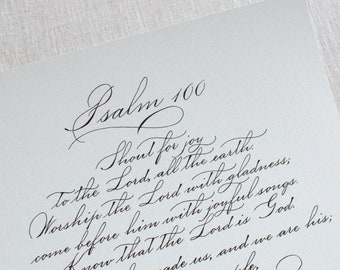 Psalm 100
Shout for joy
To the Lord, all the earth.
Worship the Lord with gladness;
come before him with joyful songs.
Know that the Lord is God.
made us, and we are his;